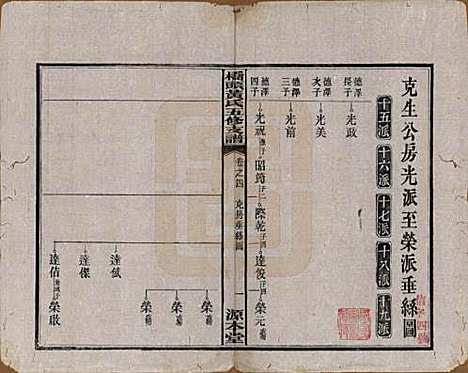 克生公房光派至榮派垂絲圖
十五派 十六派 十七派 十八派 十九派
德澤長子 光政
德澤次子 光美
德澤三子 光前
德澤四子 光祝 昭筠 子二 際乾 子四 達俊 子四 榮元
橋頭黃氏五修支譜
卷之四 克房垂絲圖 一 源本堂
榮
達
達傑 榮
達佶 榮啟